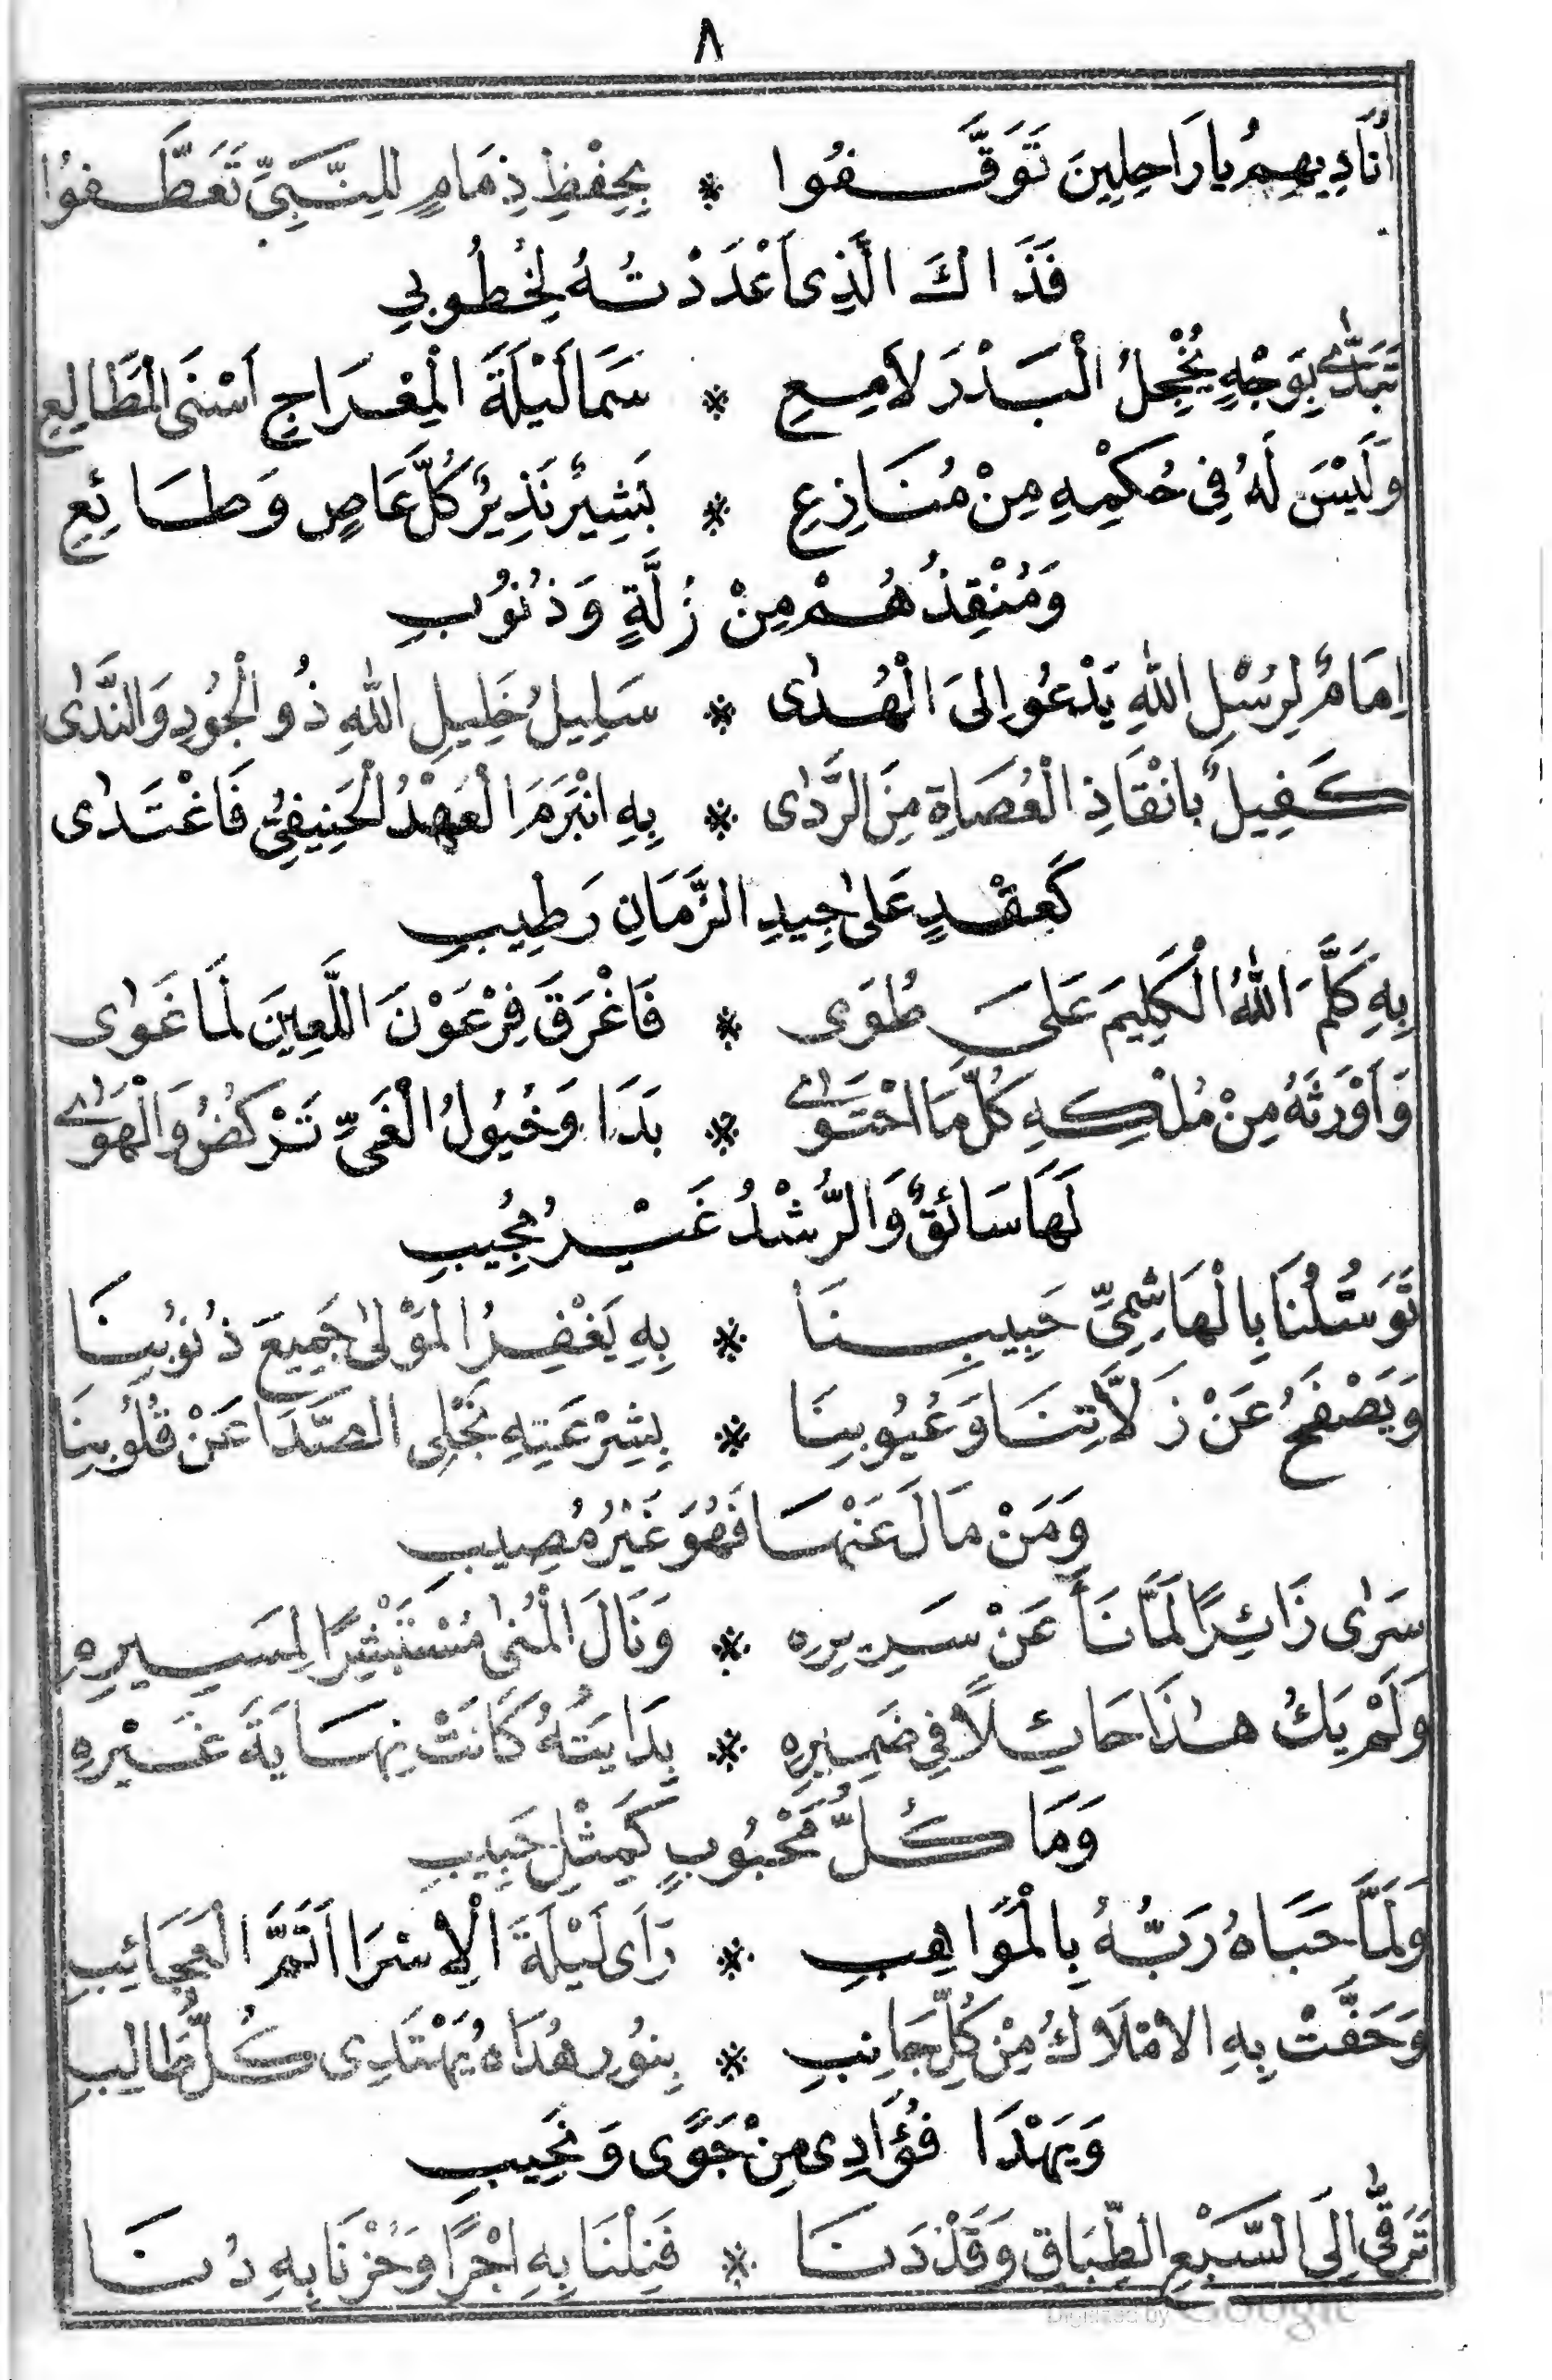 ٨
اُنَادِيهِمُ يَا رَاحِلِينَ تَوَقَّفُوا * بِحِفْظِ ذِمَامٍ لِلنَّبِيِّ تَعَطَّفُوا
فَذَاكَ الَّذِى اَعْدَدْتُهُ لِخُطُوبِى
تَبَدّٰى بِوَجْهٍ يُخْجِلُ الْبَدْرَ لَامِعِ * سَمَا لَيْلَةَ الْمِعْرَاجِ اَسْنَى الْمَطَالِعِ
وَلَيْسَ لَهُ فِى حُكْمِهِ مِنْ مُنَازِعِ * بَشِيرٌ نَذِيرٌ كُلَّ عَاصٍ وَطَائِعِ
وَمُنْقِذُهُمْ مِنْ زَلَّةٍ وَذُنُوبِ
اِمَامٌ لِرُسْلِ اللّٰهِ يَدْعُوا اِلَى الْهُدٰى * سَلِيلُ خَلِيلِ اللّٰهِ ذُو الْجُودِ وَالنَّدٰى
كَفِيلٌ بِانْقَاذِ الْعُصَاةِ مِنَ الرَّدٰى * بِهِ انْبَرَمَ الْعَهْدُ الْحَنِيفِىُّ فَاغْتَدٰى
كَعِقْدٍ عَلٰى جِيدِ الزَّمَانِ رَطِيبِ
بِهِ كَلَّمَ اللّٰهُ الْكَلِيمَ عَلَى طُوَى * فَاَغْرَقَ فِرْعَوْنَ اللَّعِينَ لَمَا غَوٰى
وَاَوْرَثَهُ مِنْ مُلْكِهِ كُلَّ مَا احْتَوٰى * بَدَا وَخُيُولُ الْغَىِّ تَرْكُضُ وَالْهَوٰى
لَهَا سَائِقٌ وَالرُّشْدُ غَيْرُ مُجِيبِ
تَوَسُّلُنَا بِالْهَاشِمِىِّ حَبِيبِنَا * بِهِ يَغْفِرُ الْمَوْلٰى جَمِيعَ ذُنُوبِنَا
وَيَصْفَحُ عَنْ زَلَّاتِنَا وَعُيُوبِنَا * بِشِرْعَتِهِ نَجْلِى الصَّدَا عَنْ قُلُوبِنَا
وَمَنْ مَالَ عَنْهَا فَهُوَ غَيْرُ مُصِيبِ
سَرٰى زَائِرًا لَمَّا نَأَ عَنْ سَرِيرِهِ * وَنَالَ الْمُنٰى مُسْتَبْشِرًا لِمَسِيرِهِ
وَلَمْ يَكُ هٰذَا حَائِلًا فِى ضَمِيرِهِ * بِدَايَتُهُ كَانَتْ نِهَايَةَ غَيْرِهِ
وَمَا كُلُّ مَحْبُوبٍ كَمِثْلِ حَبِيبِ
وَلَمَّا حَبَاهُ رَبُّهُ بِالْمَوَاهِبِ * رَاَى لَيْلَةَ الْاِسْرَا اَتَمَّ الْعَجَائِبِ
وَحَفَّتْ بِهِ الامْلَاكُ مِنْ كُلِّ جَانِبِ * بِنُورِ هُدَاهُ يُهْتَدِى كُلُّ طَالِبِ
وَيَهْدَا فُؤَادِى مِنْ جَوًى وَنَحِيبِ
تَرَقّٰى اِلَى السَّبْعِ الطِّبَاقِ وَقَدْ دَنَا * فَنِلْنَا بِهِ اجْرًا وَحُزْنَا بِهِ دُنَا
Digitized by Google